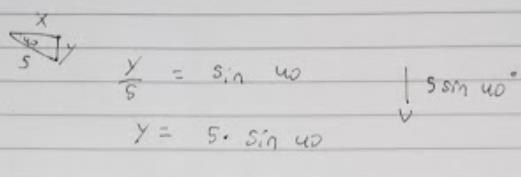 X
40
S
Y
Y/S = Sin 40
Y = S · Sin 40
S sin 40°